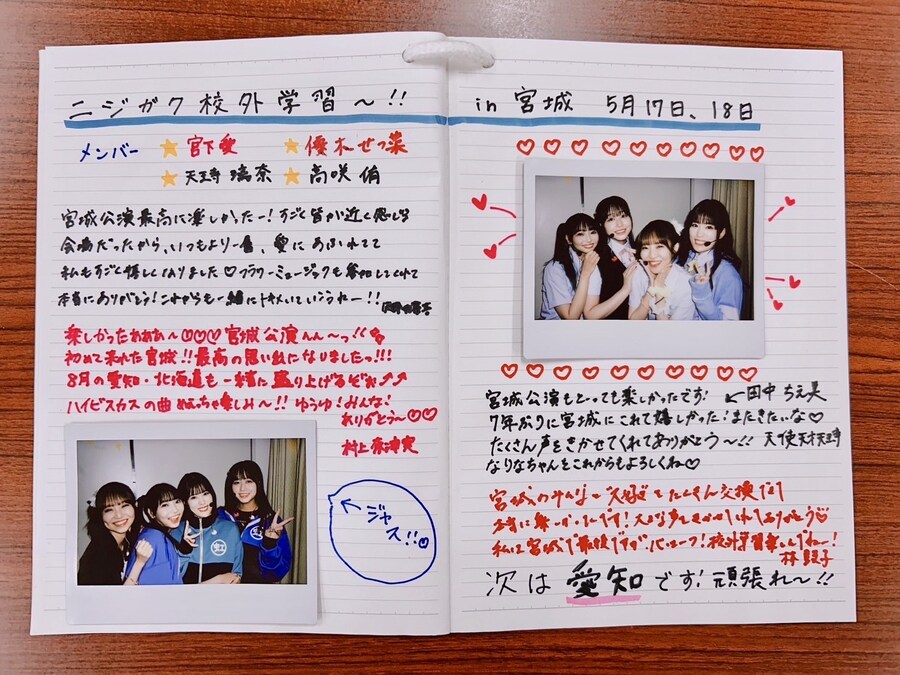 ニジガク校外学習〜!!
メンバー ★宮下愛 ★優木せつ菜
★天王寺璃奈 ★高咲侑
宮城公演最高に楽しかったー!すごく皆が近く感じる
会場だったから、いつもより一層、愛にあふれてて
私もすごく嬉しくなりました♡フラワーミュージックも参加してくれて
本当にありがとう!これからも一緒にトキメいていこうねー!!
楽しかったあああ〜♡♡♡宮城公演んん〜っ!!
初めて来れた宮城!!最高の思い出になりましたっ!!!
8月の愛知・北海道も一緒に盛り上げるぞぉ⤴⤴
ハイビスカスの曲めっちゃ楽しみ〜!!ゆうゆ!みんな!
ありがとう〜♡♡
村上奈津実
←ジャス!!
in 宮城 5月17日、18日
宮城公演もとっても楽しかったです! ←田中ちえ美
7年ぶりに宮城にこれて嬉しかった!またきたいな♡
たくさん声をきかせてくれてありがとう〜!! 天使天才天王寺
なりなちゃんをこれからもよろしくね♡
宮城のみんなと"大好き"をたくさん交換できて
本当に楽しかったです!大きな声をきかせてくれてありがとう♡
私は宮城で最後ですが、校外学習楽しんでねー!
林鼓子
次は愛知です!頑張れ〜!!